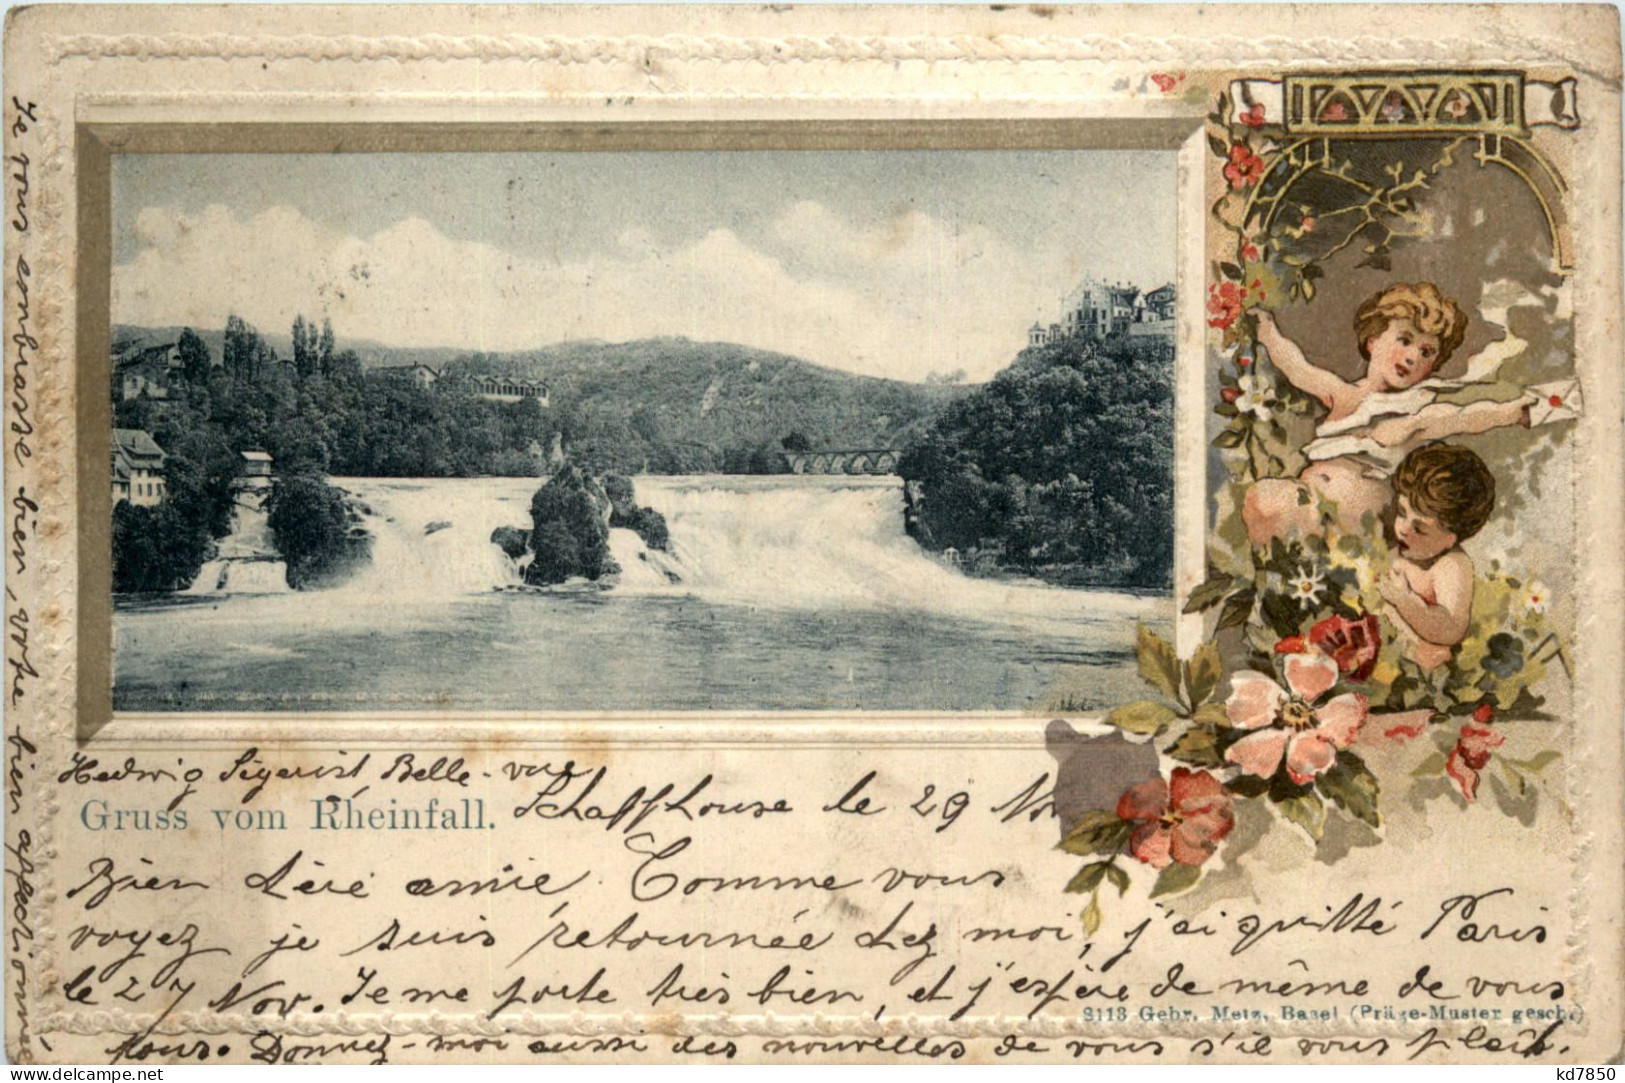 Je vous embrasse bien, votre bien affectionnée
Hedwig Sigerist, Belle-vue
Gruss vom Rheinfall.
Schaffhouse le 29 Nov
Bien chère amie, Comme vous
voyez je suis retournée chez moi, j'ai quitté Paris
le 27 Nov. Je me porte très bien, et j'espère de même de vous
3113 Gebr. Metz, Basel (Präge-Muster gesch.)
tous. Donnez-moi aussi des nouvelles de vous s'il vous plaît.
kd7850